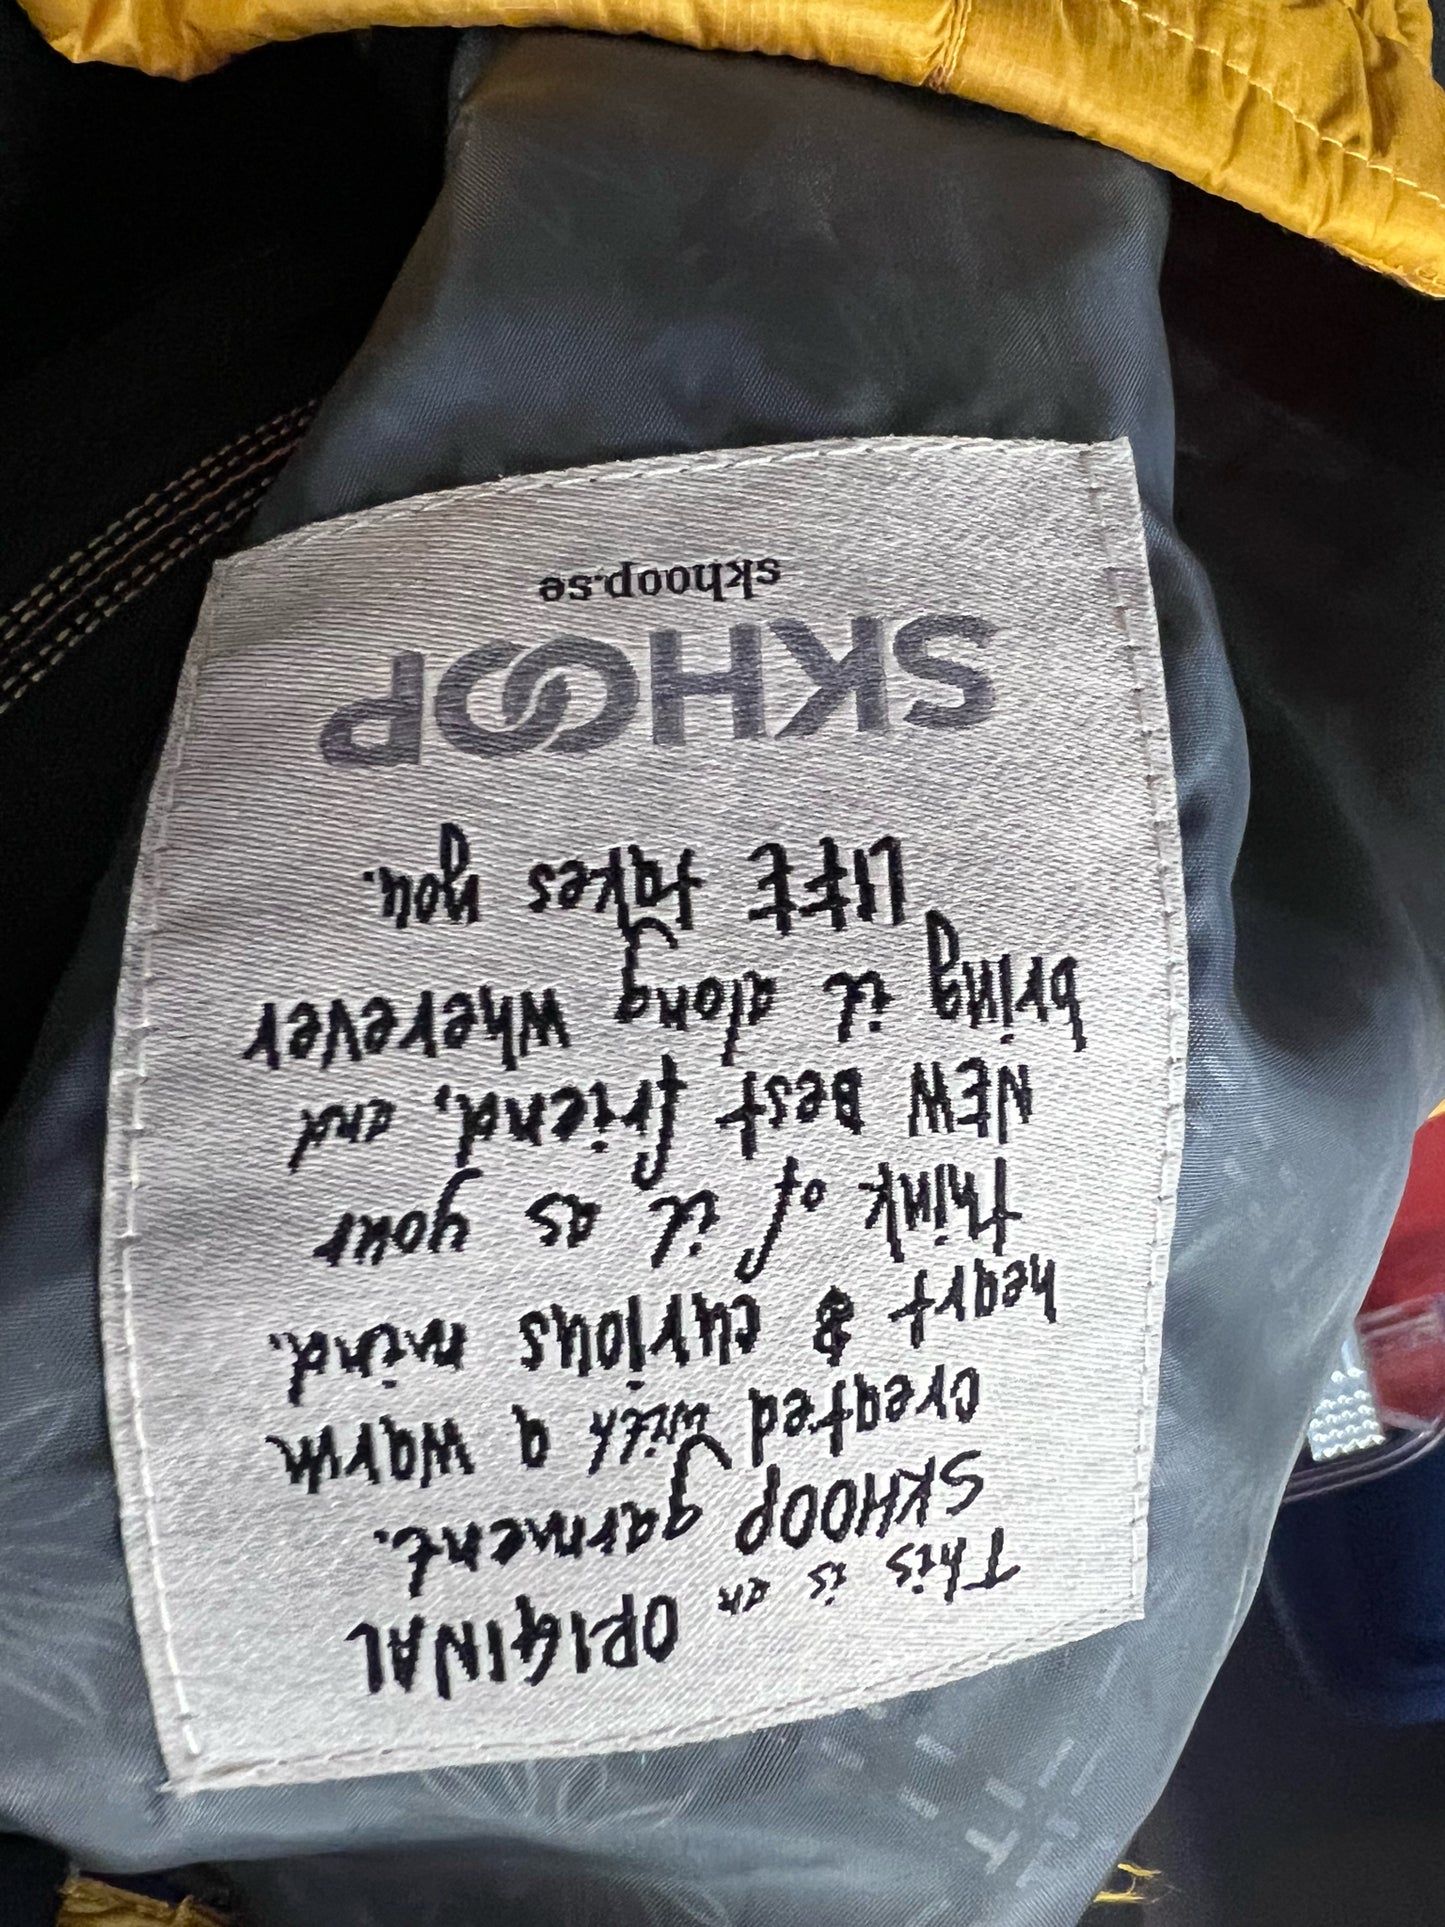 This is an ORIGINAL
SKHOOP garment.
created with a warm
heart & curious mind.
Think of it as your
NEW Best friend, and
bring it along wherever
LIFE takes you.
SKHOOP
skhoop.se